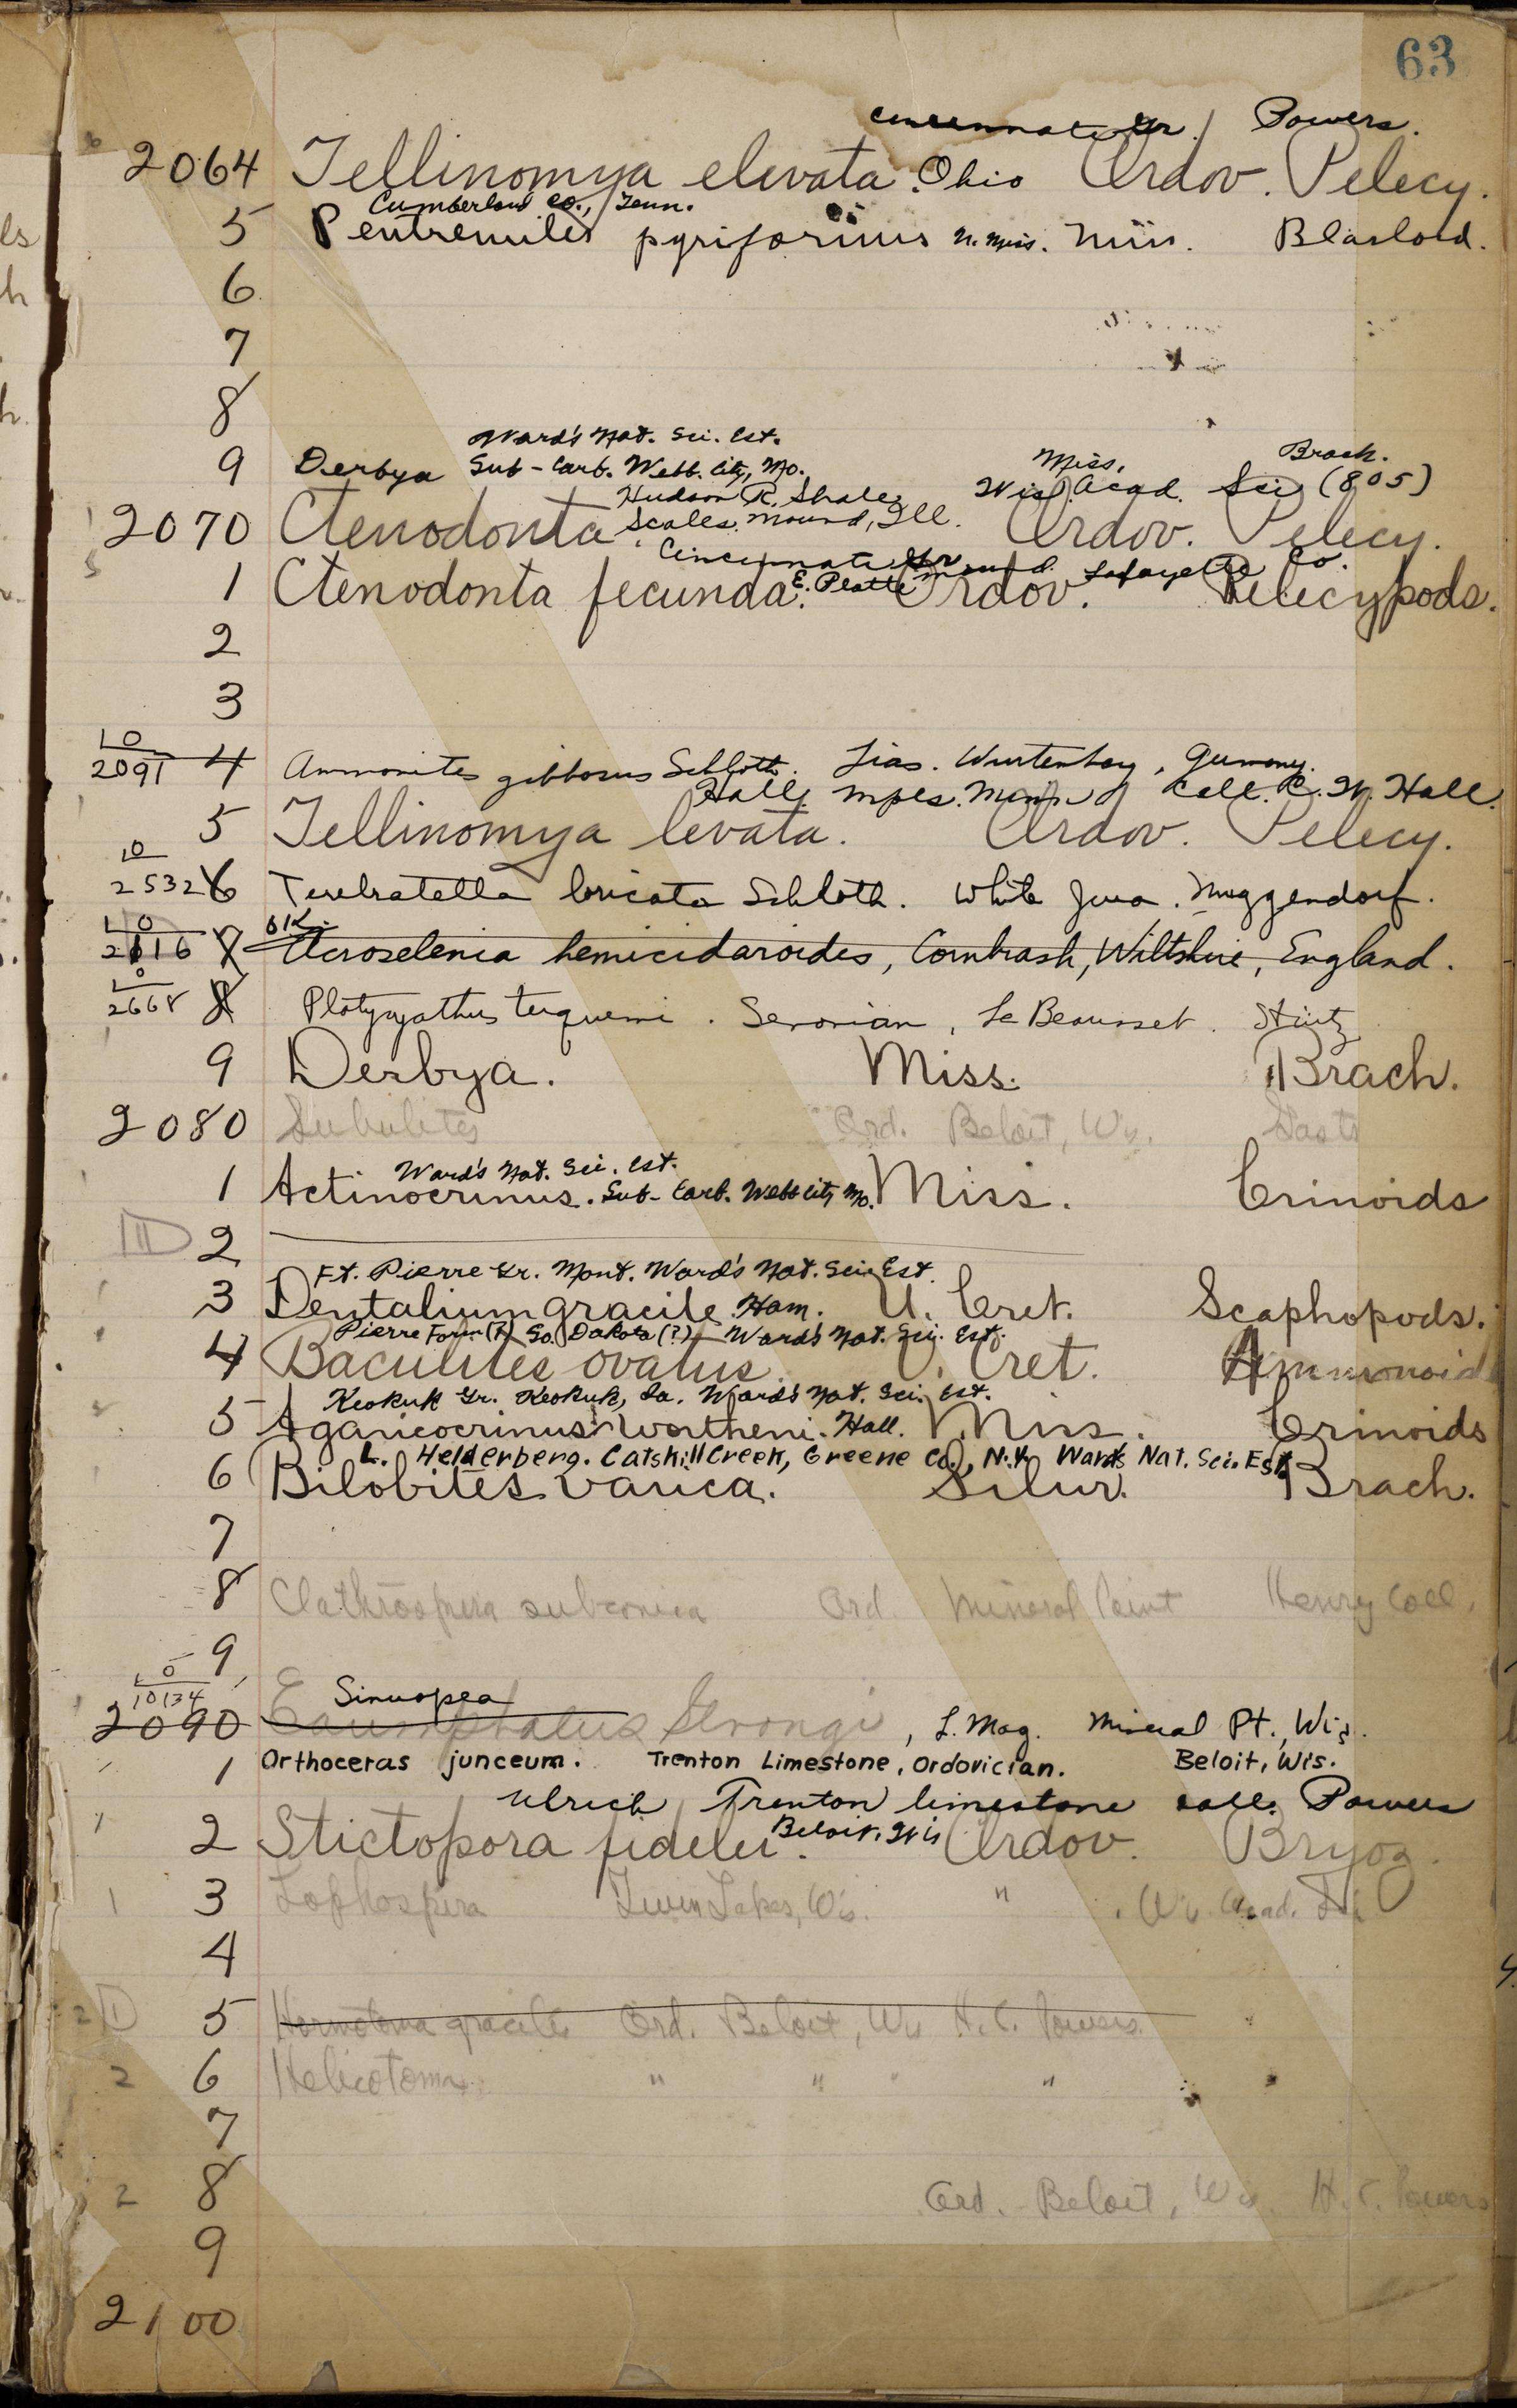 63
Cincinnati Gr. Powers.
2064 Tellinomya elevata. Ohio Ordov. Pelecy.
Cumberland Co., Tenn.
5 Pentremites pyriformis U. Miss. Miss. Blastoid.
6
7
8
Ward's Nat. Sci. Est. Miss. Brach.
9 Derbya Sub-Carb. Webb City, Mo.
Hudson R. Shales Wis. Acad. Sci (805)
2070 Ctenodonta. Scales Mound, Ill. Ordov. Pelecy.
Cincinnati Gr
E. Platte Mound Lafayette Co.
1 Ctenodonta fecunda. Ordov. Pelecypods.
2
3
LO
2091 4 Ammonites gibbosus Schloth. Lias. Wurtenberg, Germany.
Hall. Mpls. Minn Coll. C. W. Hall.
5 Tellinomya levata. Ordov. Pelecy.
LO
2532 6 Terebratella loricata Schloth. White Jura. Muggendorf.
LO OK
2116 7 Acroselenia hemicidaroides, Cornbrash, Wiltshire, England.
LO
2668 8 Platycyathus terquemi. Senonian, Le Beausset. Stürtz
9 Derbya. Miss. Brach.
2080 Subulites Ord. Beloit, Wis. Gasts
Ward's Nat. Sci. Est.
1 Actinocrinus. Sub-Carb. Webb City Mo. Miss. Crinoids
2
Ft. Pierre Gr. Mont. Ward's Nat. Sci. Est.
3 Dentalium gracile Ham. U. Cret. Scaphopods.
Pierre Form (?) So. Dakota (?) Ward's Nat. Sci. Est.
4 Baculites ovatus. U. Cret. Ammonoid
Keokuk Gr. Keokuk, Ia. Ward's Nat. Sci. Est.
5 Agaricocrinus wortheni. Hall. Miss. Crinoids
L. Helderberg. Catskill Creek, Greene Co., N.Y. Ward's Nat. Sci. Est.
6 Bilobites varica. Silur. Brach.
7
8 Clathrospira subconica Ord. Mineral Point Henry Coll.
9
LO
10134 Sinuopea
2090 Euomphalus Strongi, L. Mag. Mineral Pt., Wis.
1 Orthoceras junceum. Trenton Limestone, Ordovician. Beloit, Wis.
Ulrich Trenton limestone coll. Powers
2 Stictopora fidelis. Beloit, Wis Ordov. Bryoz.
3 Lophospira Twin Lakes, Wis. " Wis. Acad. Sci
4
5 Hormotoma gracilis Ord. Beloit, Wis H. C. Powers
6 Helicotoma " " " "
7
8 Ord. Beloit, Wis. H. C. Powers
9
2100